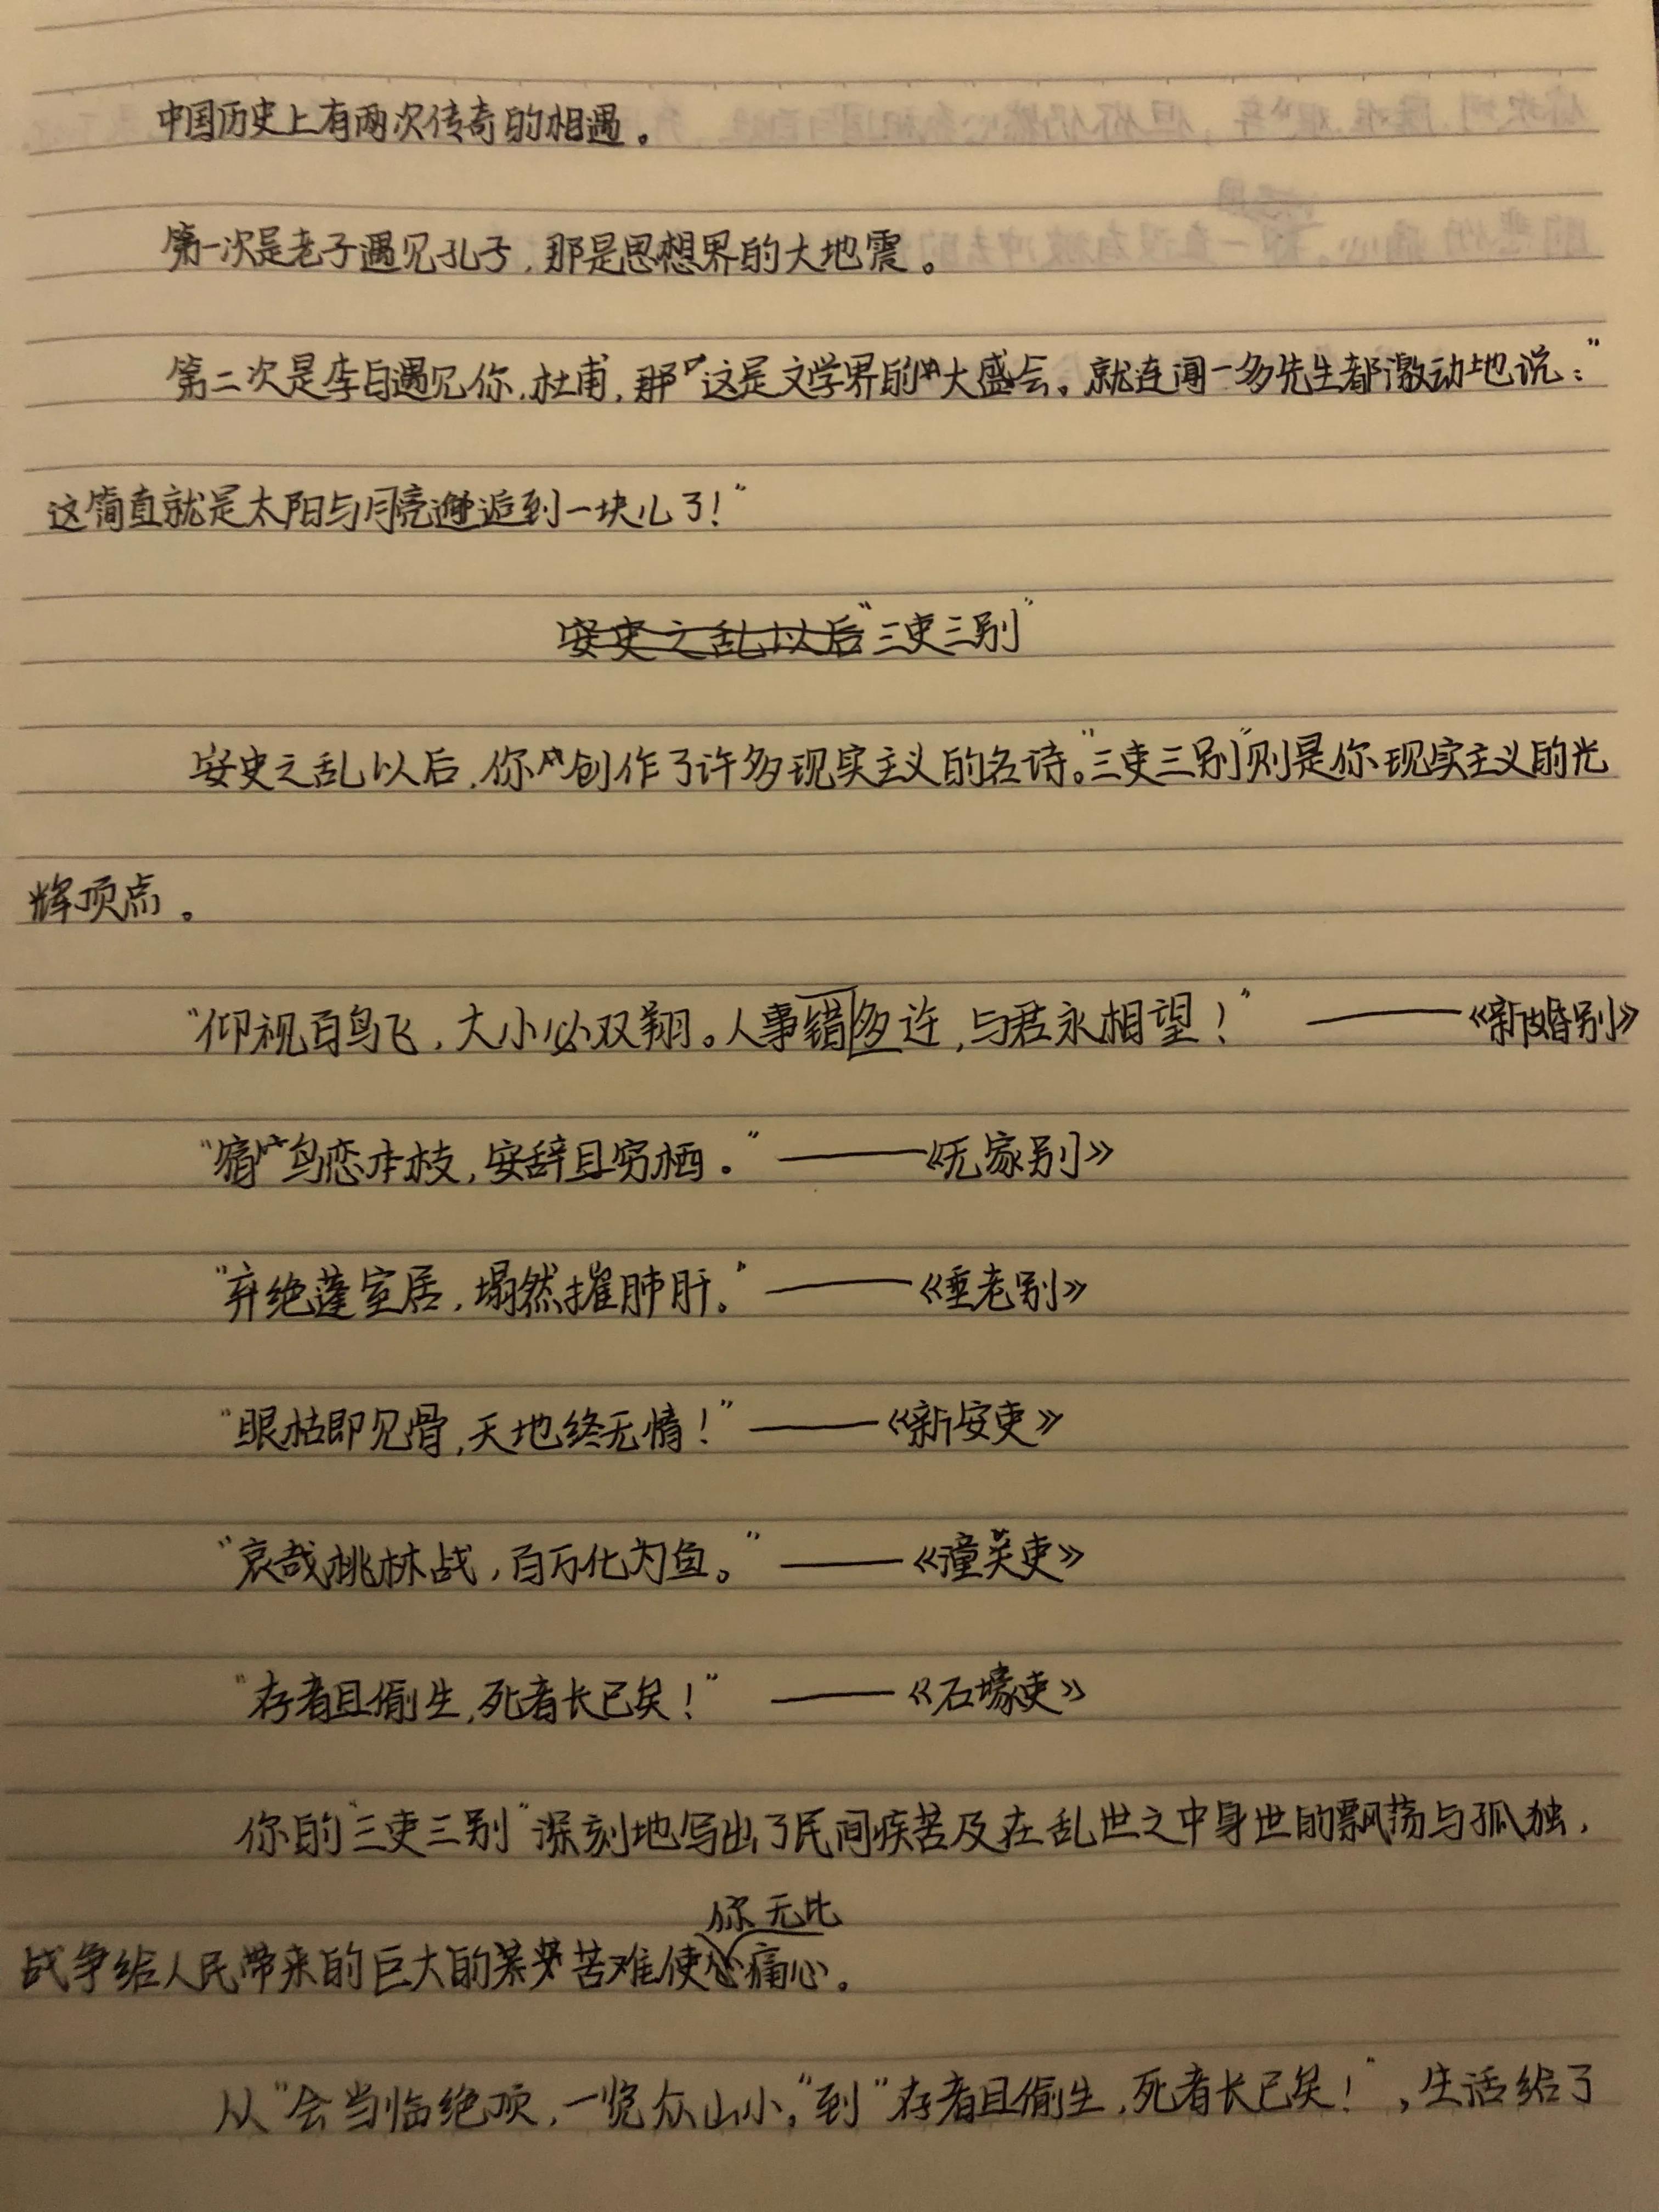 中国历史上有两次传奇的相遇。
第一次是老子遇见孔子，那是思想界的大地震。
第二次是李白遇见你，杜甫，那这是文学界的大盛会。就连闻一多先生都激动地说：“
这简直就是太阳与月亮邂逅到一块儿了！”
安史之乱以后“三吏三别”
安史之乱以后，你创作了许多现实主义的名诗。“三吏三别”则是你现实主义的光
辉顶点。
“仰视百鸟飞，大小必双翔。人事错多迕，与君永相望！”——《新婚别》
“宿鸟恋本枝，安辞且穷栖。”——《无家别》
“弃绝蓬室居，塌然摧肺肝。”——《垂老别》
“眼枯即见骨，天地终无情！”——《新安吏》
“哀哉桃林战，百万化为鱼。”——《潼关吏》
“存者且偷生，死者长已矣！”——《石壕吏》
你的“三吏三别”深刻地写出了民间疾苦及在乱世之中身世的飘荡与孤独，
战争给人民带来的巨大的苦难使你无比痛心。
从“会当临绝顶，一览众山小，”到“存者且偷生，死者长已矣！”，生活给了